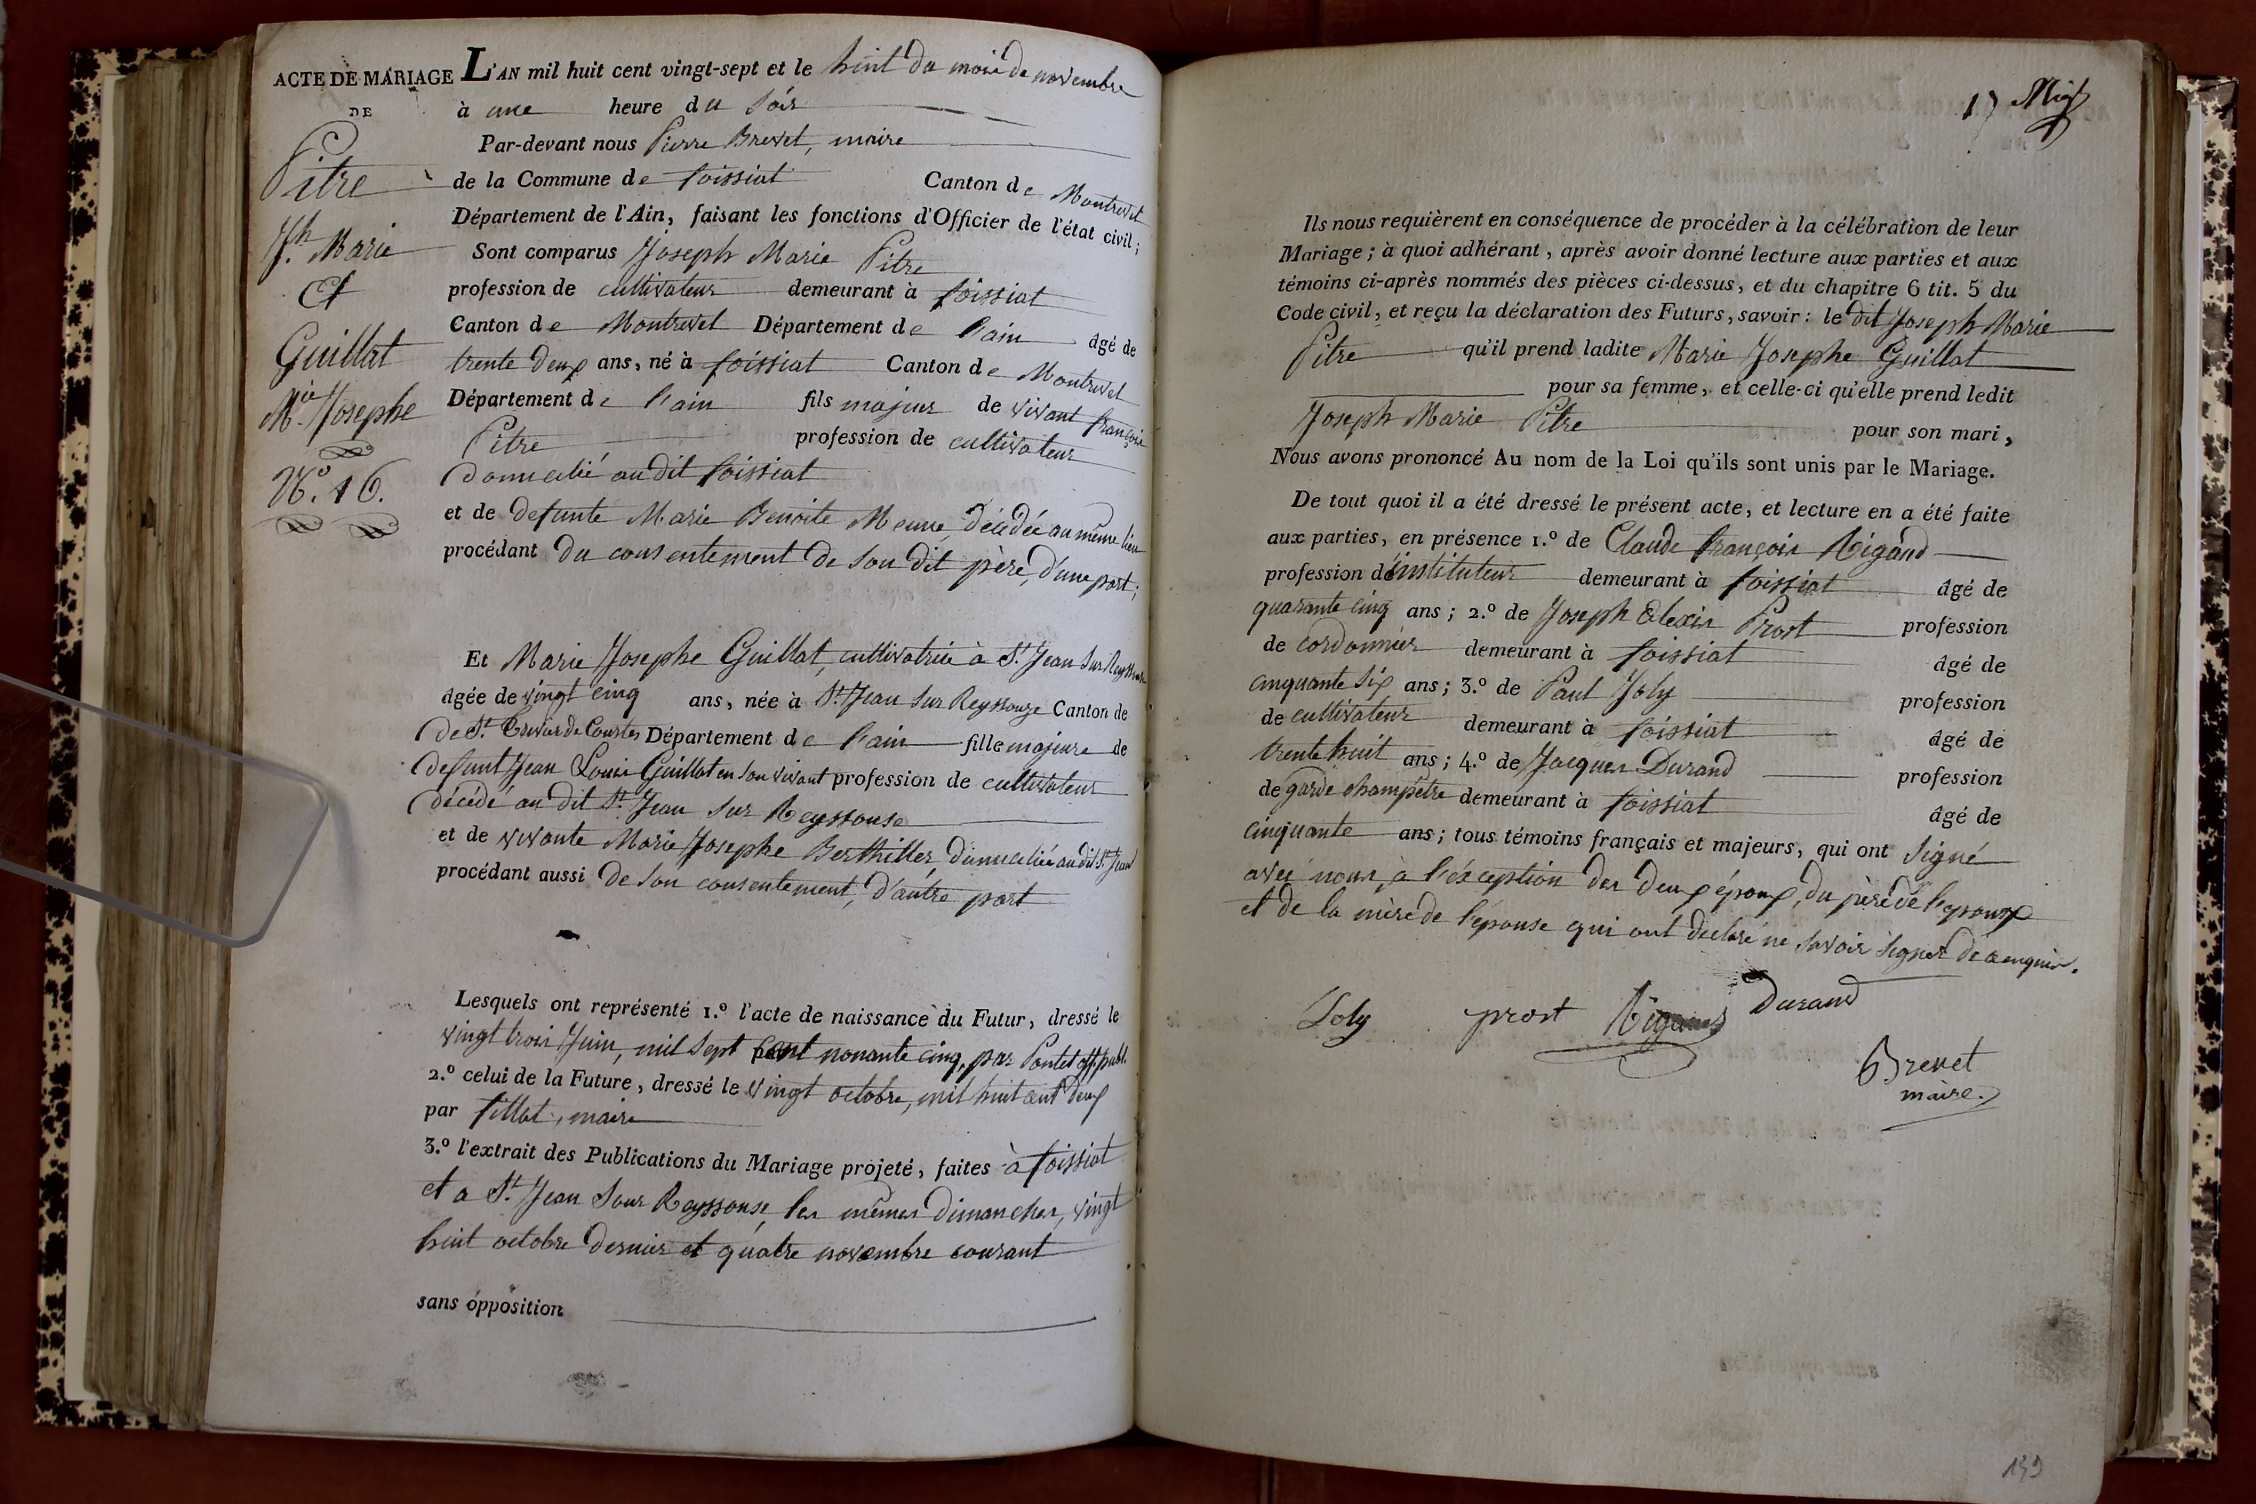 ACTE DE MARIAGE
DE
Pitre
Jh. Marie
Et
Guillat
Mie. Josephe
N°. 16.
L'AN mil huit cent vingt-sept et le huit du mois de novembre
à une heure du soir
Par-devant nous Pierre Brevet, maire
de la Commune de foissiat Canton de Montrevel
Département de l'Ain, faisant les fonctions d'Officier de l'état civil;
Sont comparus Joseph Marie Pitre
profession de cultivateur demeurant à foissiat
Canton de Montrevel Département de l'ain âgé de
trente deux ans, né à foissiat Canton de Montrevel
Département de l'ain fils majeur de vivant françois
Pitre profession de cultivateur
domicilié au dit foissiat
et de defunte Marie Benoite Meune, décédée au même lieu
procédant du consentement de son dit père, d'une part;
Et Marie Josephe Guillat, cultivatrice à St. Jean sur Reyssouse
âgée de vingt cinq ans, née à St. Jean sur Reyssouze Canton de
de St. Trivier de Courtes Département de l'ain fille majeure de
defunt Jean Louis Guillat en son vivant profession de cultivateur
décédé au dit St. Jean sur Reyssouse
et de vivante Marie Josephe Berthillet, domiciliée au dit St. Jean
procédant aussi de son consentement, d'autre part
Lesquels ont représenté 1.º l'acte de naissance du Futur, dressé le
vingt trois Juin, mil sept cent nonante cinq, par Pontet off. publ.
2.º celui de la Future, dressé le vingt octobre, mil huit cent deux
par fillat, maire
3.º l'extrait des Publications du Mariage projeté, faites à foissiat
et a St. Jean sour Reyssouse, les mêmes dimanches, vingt
huit octobre dernier et quatre novembre courant
sans opposition
17
Ils nous requièrent en conséquence de procéder à la célébration de leur
Mariage; à quoi adhérant, après avoir donné lecture aux parties et aux
témoins ci-après nommés des pièces ci-dessus, et du chapitre 6 tit. 5 du
Code civil, et reçu la déclaration des Futurs, savoir: le dit Joseph Marie
Pitre qu'il prend ladite Marie Josephe Guillat
pour sa femme, et celle-ci qu'elle prend ledit
Joseph Marie Pitre pour son mari,
Nous avons prononcé Au nom de la Loi qu'ils sont unis par le Mariage.
De tout quoi il a été dressé le présent acte, et lecture en a été faite
aux parties, en présence 1.º de Claude françois Rigaud
profession d'instituteur demeurant à foissiat âgé de
quarante cinq ans; 2.º de Joseph Alexis Prost profession
de cordonnier demeurant à foissiat âgé de
cinquante six ans; 3.º de Paul Joly profession
de cultivateur demeurant à foissiat âgé de
trente huit ans; 4.º de Jacques Durand profession
de garde champêtre demeurant à foissiat âgé de
cinquante ans; tous témoins français et majeurs, qui ont signé
avec nous, à l'éxception des deux époux, du père de l'epoux
et de la mère de l'épouse qui ont declaré ne savoir signer de ce enquis.
Joly prost Rigaud Durand
Brevet
maire
139